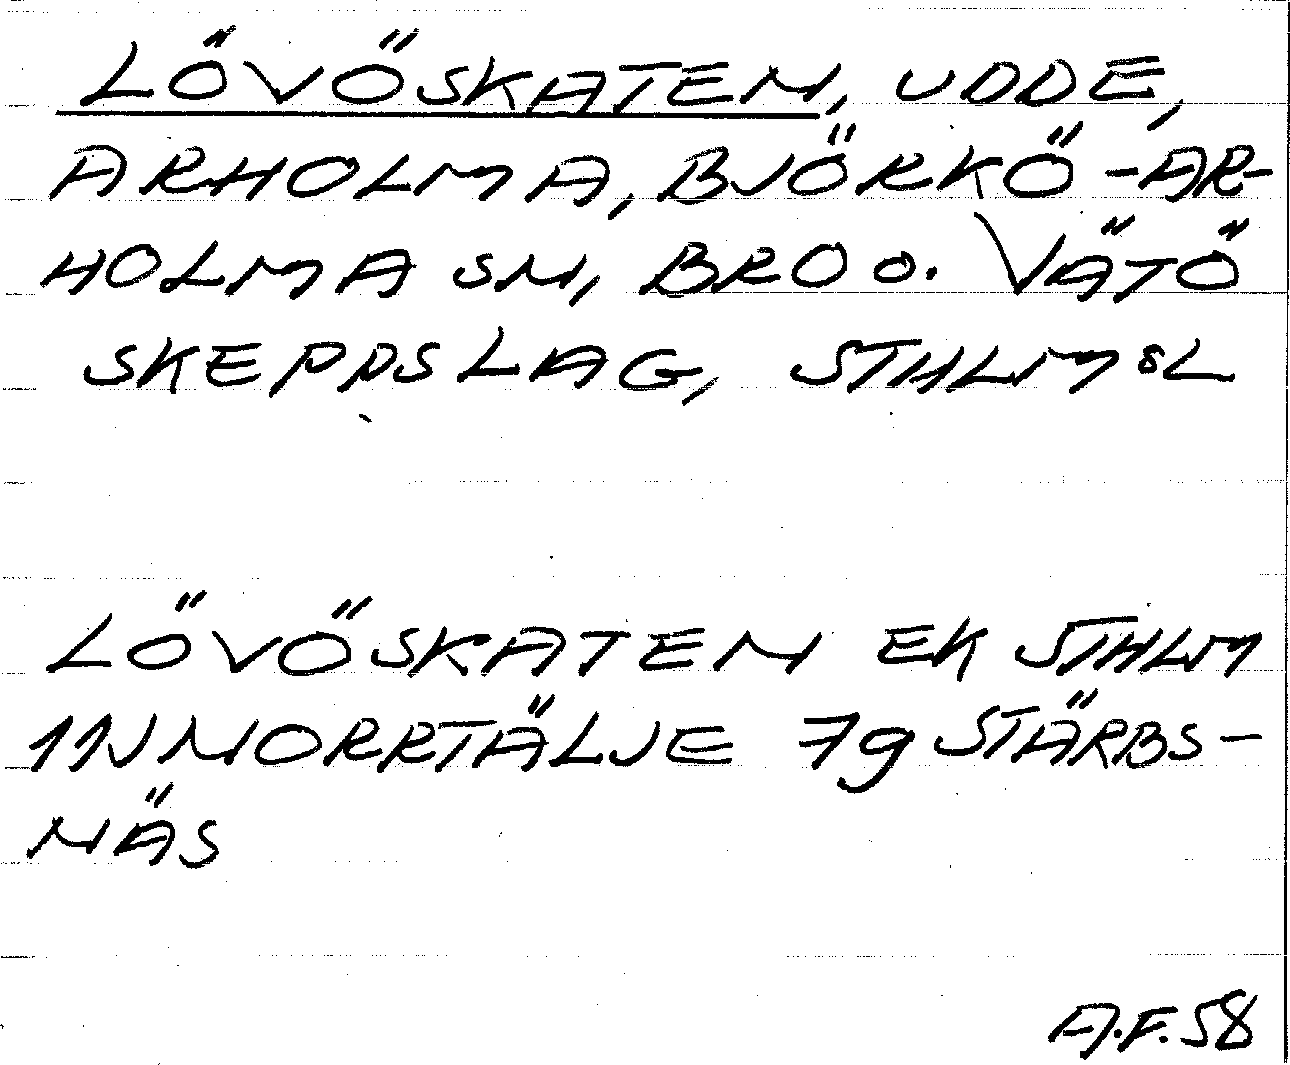 LÖVÖSKATEN, UDDE,
ARHOLMA, BJÖRKÖ-AR-
HOLMA SN, BRO O. VÄTÖ
SKEPPSLAG, STHLMSL
LÖVÖSKATEN EK STHLM
11J NORRTÄLJE 79 STÄRBS-
NÄS
A.F. 58